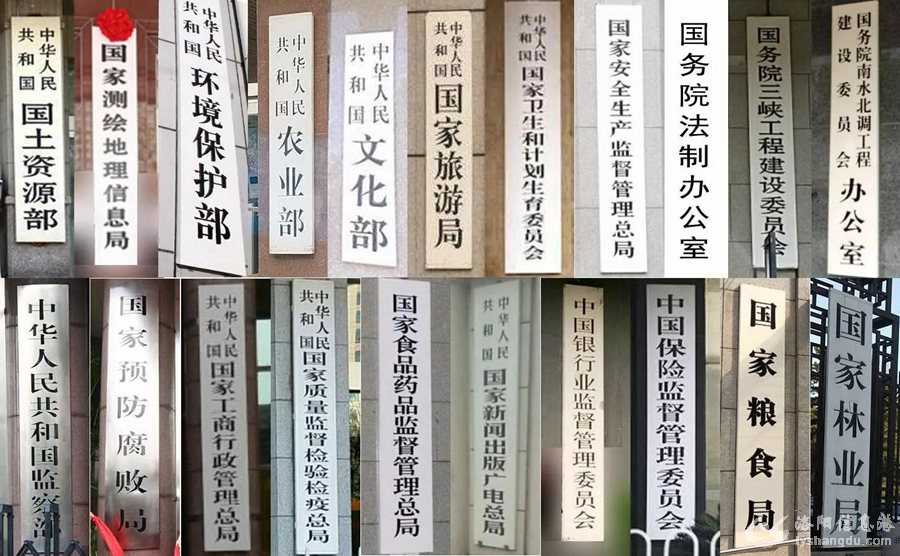 中华人民
共和国
国土资源部
国家测绘地理信息局
中华人民
共和国
环境保护部
中华人民
共和国
农业部
中华人民
共和国
文化部
中华人民
共和国
国家旅游局
中华人民
共和国
国家卫生和计划生育委员会
国家安全生产监督管理总局
国务院法制办公室
国务院三峡工程建设委员会
国务院南水北调工程
建设委员会
办公室
中华人民共和国监察部
国家预防腐败局
中华人民
共和国
国家工商行政管理总局
中华人民
共和国
国家质量监督检验检疫总局
国家食品药品监督管理总局
中华人民
共和国
国家新闻出版广电总局
中国银行业监督管理委员会
中国保险监督管理委员会
国家粮食局
国家林业局
洛阳信息港
lyshangdu.com